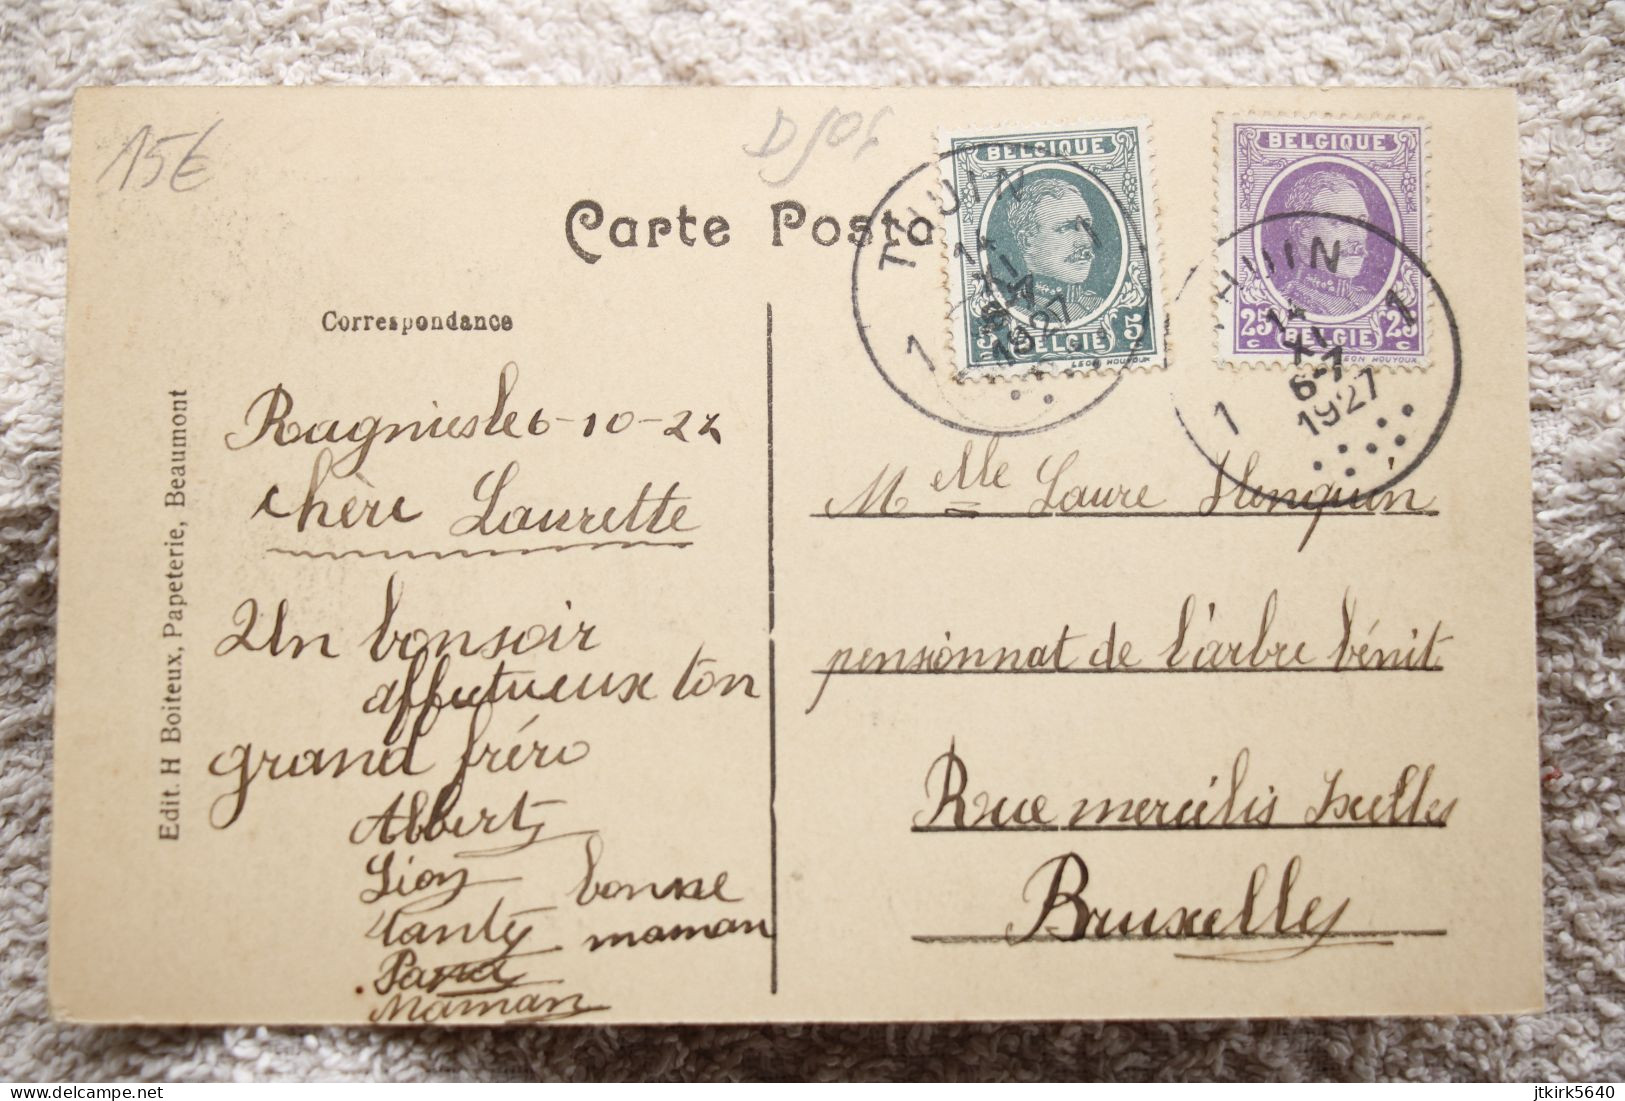 15€
Carte Posta
Correspondance
Edit. H Boiteux, Papeterie, Beaumont
Ragnies le 6-10-27
chère Laurette
Un bonsoir
affectueux ton
grand frère
Albert
Lion
bonne
maman
Papa
Maman
BELGIQUE
5c
BELGIE
LEON HOUYOUX
BELGIQUE
25c 25c
BELGIE
LEON HOUYOUX
THUIN
1 1
14
XI
1927
THUIN
1 1
14
XI
6-7
1927
Melle Laure Henquin
pensionnat de l'arbre bénit
Rue mercelis Ixelles
Bruxelles
delcampe.net
jtkirk5640